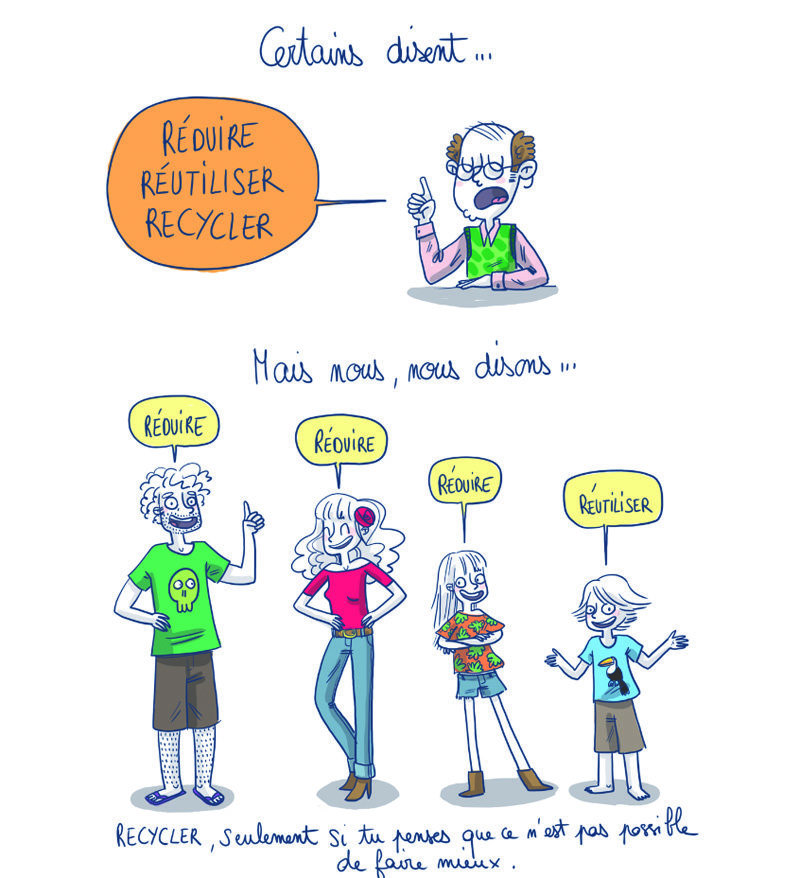 Certains disent...
RÉDUIRE
RÉUTILISER
RECYCLER
Mais nous, nous disons...
RÉDUIRE
RÉDUIRE
RÉDUIRE
RÉUTILISER
RECYCLER, seulement si tu penses que ce n'est pas possible
de faire mieux.